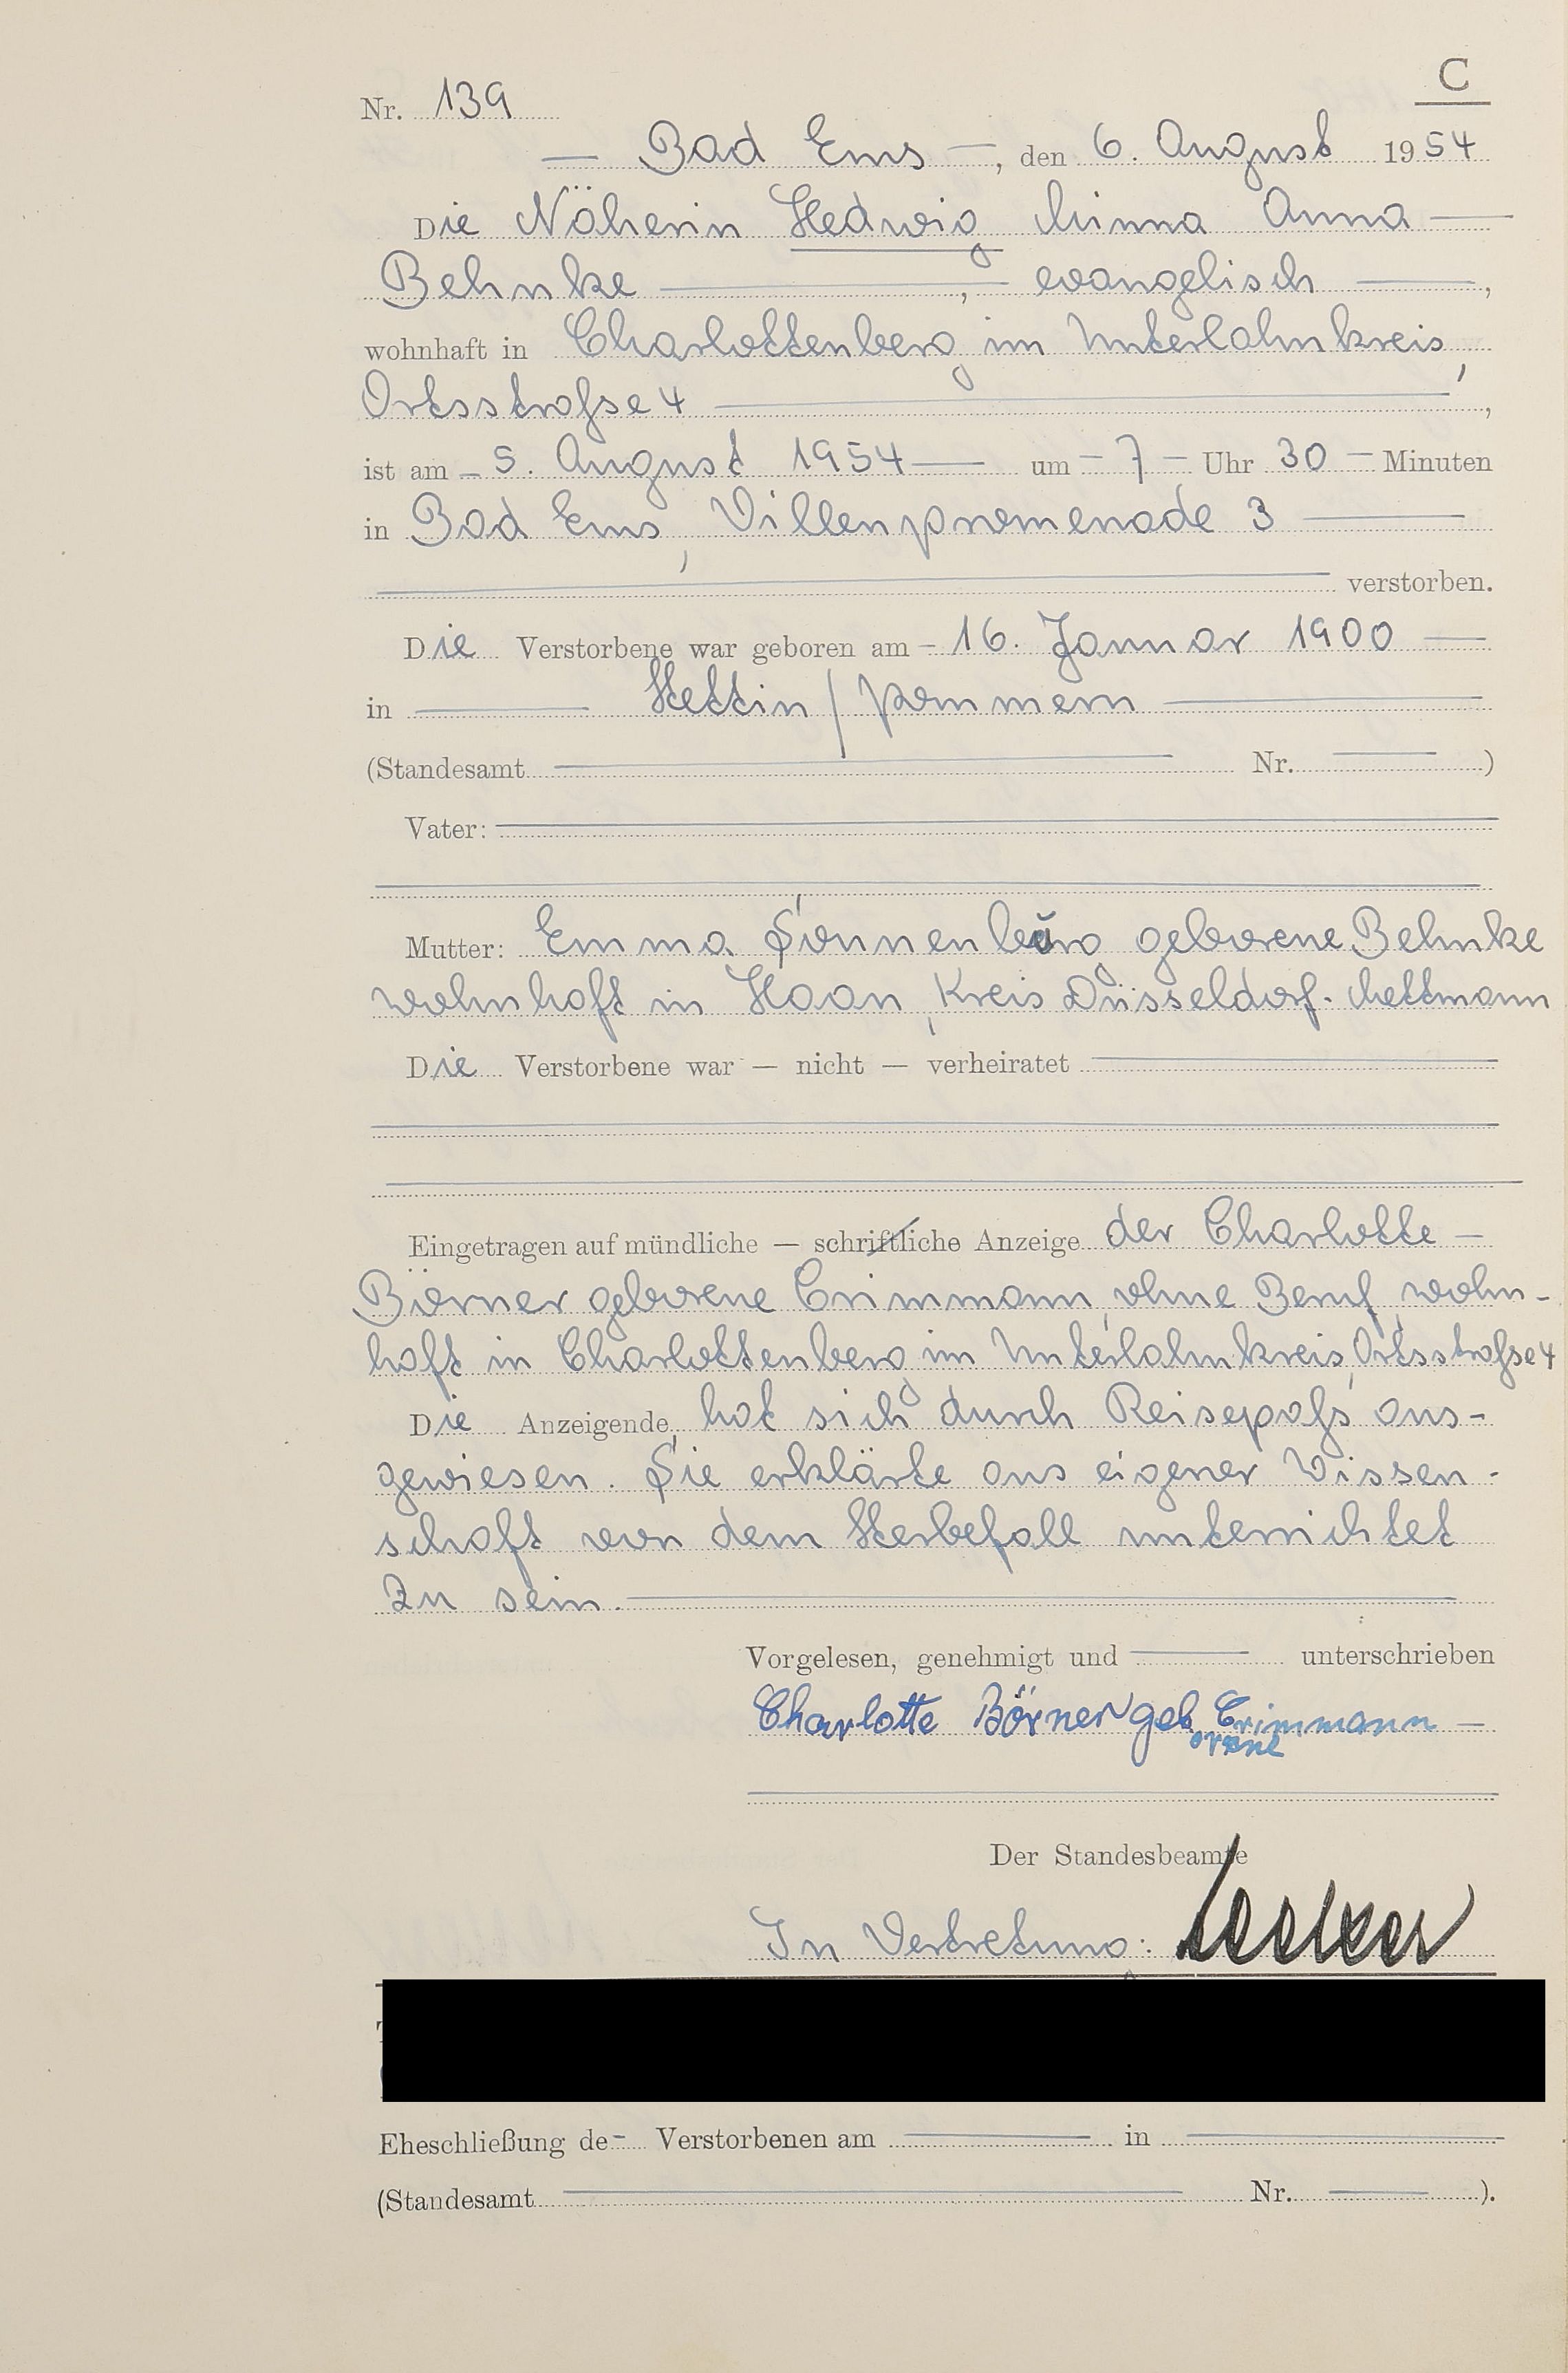 C
Nr. 139
— Bad Ems —, den 6. August 1954
Die Näherin Hedwig Minna Anna —
Behnke —, — evangelisch —,
wohnhaft in Charlottenberg im Unterlahnkreis,
Ortsstraße 4 —,
ist am — 5. August 1954 — um — 7 — Uhr 30 — Minuten
in Bad Ems, Villenpromenade 3 —
— verstorben.
Die Verstorbene war geboren am — 16. Januar 1900 —
in — Stettin / Pommern —
(Standesamt — Nr. —)
Vater: —
Mutter: Emma Sonnenburg geborene Behnke
wohnhaft in Haan, Kreis Düsseldorf-Mettmann
Die Verstorbene war — nicht — verheiratet —
Eingetragen auf mündliche — schriftliche Anzeige der Charlotte —
Börner geborene Crimmann, ohne Beruf, wohn-
haft in Charlottenberg im Unterlahnkreis, Ortsstraße 4
Die Anzeigende, hat sich durch Reisepaß aus-
gewiesen. Sie erklärte aus eigener Wissen-
schaft von dem Sterbefall unterrichtet
zu sein. —
Vorgelesen, genehmigt und — unterschrieben
Charlotte Börner geborene Crimmann —
Der Standesbeamte
In Vertretung:
Eheschließung de— Verstorbenen am — in —
(Standesamt — Nr. —).